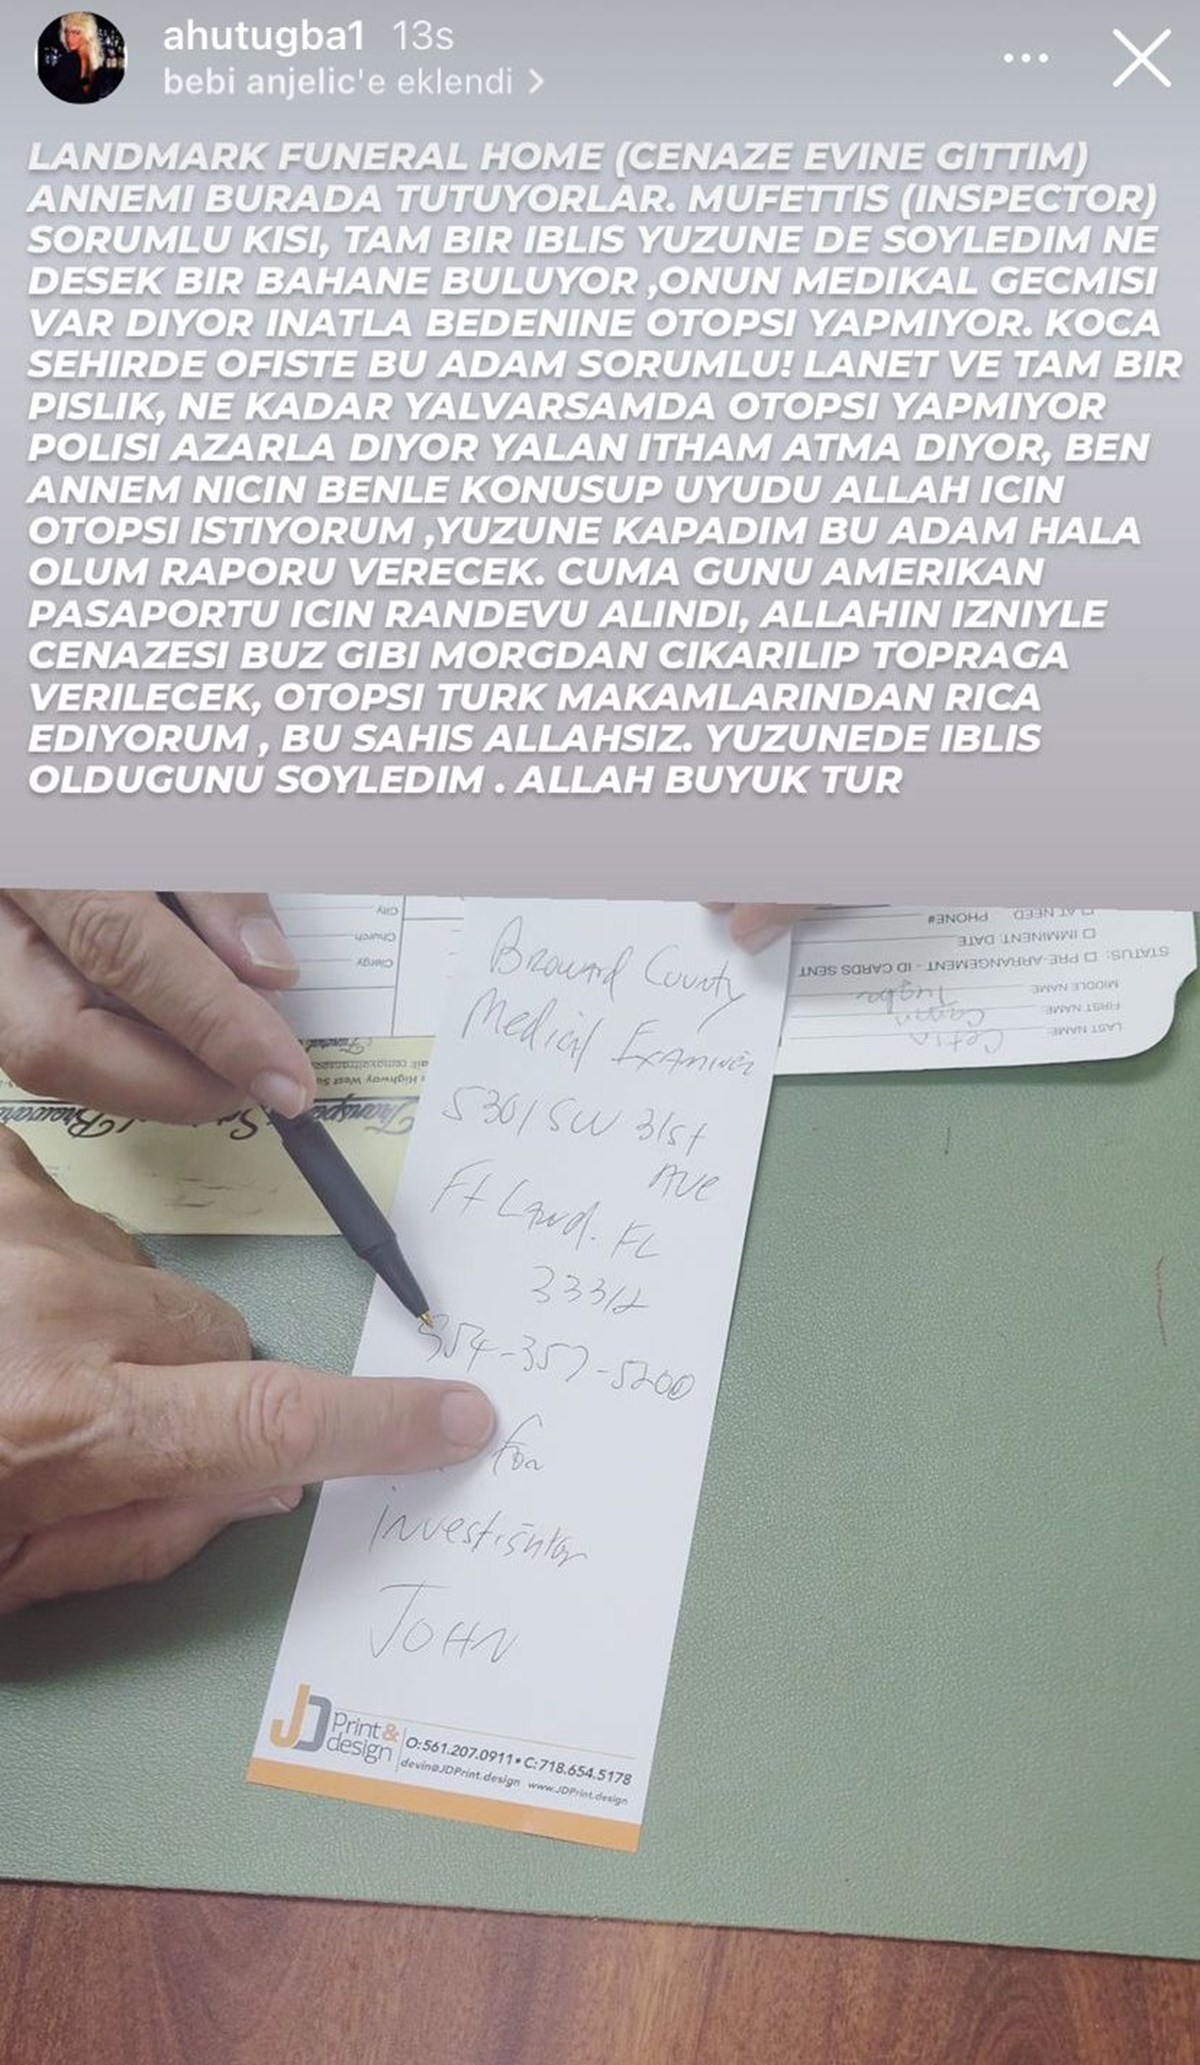 ahutugba1 13s
bebi anjelic'e eklendi >
LANDMARK FUNERAL HOME (CENAZE EVINE GITTIM)
ANNEMI BURADA TUTUYORLAR. MUFETTIS (INSPECTOR)
SORUMLU KISI, TAM BIR IBLIS YUZUNE DE SOYLEDIM NE
DESEK BIR BAHANE BULUYOR ,ONUN MEDIKAL GECMISI
VAR DIYOR INATLA BEDENINE OTOPSI YAPMIYOR. KOCA
SEHIRDE OFISTE BU ADAM SORUMLU! LANET VE TAM BIR
PISLIK, NE KADAR YALVARSAMDA OTOPSI YAPMIYOR
POLISI AZARLA DIYOR YALAN ITHAM ATMA DIYOR, BEN
ANNEM NICIN BENLE KONUSUP UYUDU ALLAH ICIN
OTOPSI ISTIYORUM ,YUZUNE KAPADIM BU ADAM HALA
OLUM RAPORU VERECEK. CUMA GUNU AMERIKAN
PASAPORTU ICIN RANDEVU ALINDI, ALLAHIN IZNIYLE
CENAZESI BUZ GIBI MORGDAN CIKARILIP TOPRAGA
VERILECEK, OTOPSI TURK MAKAMLARINDAN RICA
EDIYORUM , BU SAHIS ALLAHSIZ. YUZUNEDE IBLIS
OLDUGUNU SOYLEDIM . ALLAH BUYUK TUR
City
Church
Clergy
AT NEED PHONE#
IMMINENT: DATE
STATUS: PRE-ARRANGEMENT - ID CARDS SENT
MIDDLE NAME Tugba
FIRST NAME: Canan
LAST NAME: Cetin
Highway West
Broward County
Medical Examiner
5301 SW 31st
Ave
Ft Laud. FL
33312
954-357-5200
for
investigator
JOHN
JD Print& design
O:561.207.0911 • C:718.654.5178
devin@JDPrint.design www.JDPrint.design